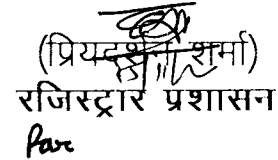 (प्रियदर्शन शर्मा)
रजिस्ट्रार प्रशासन